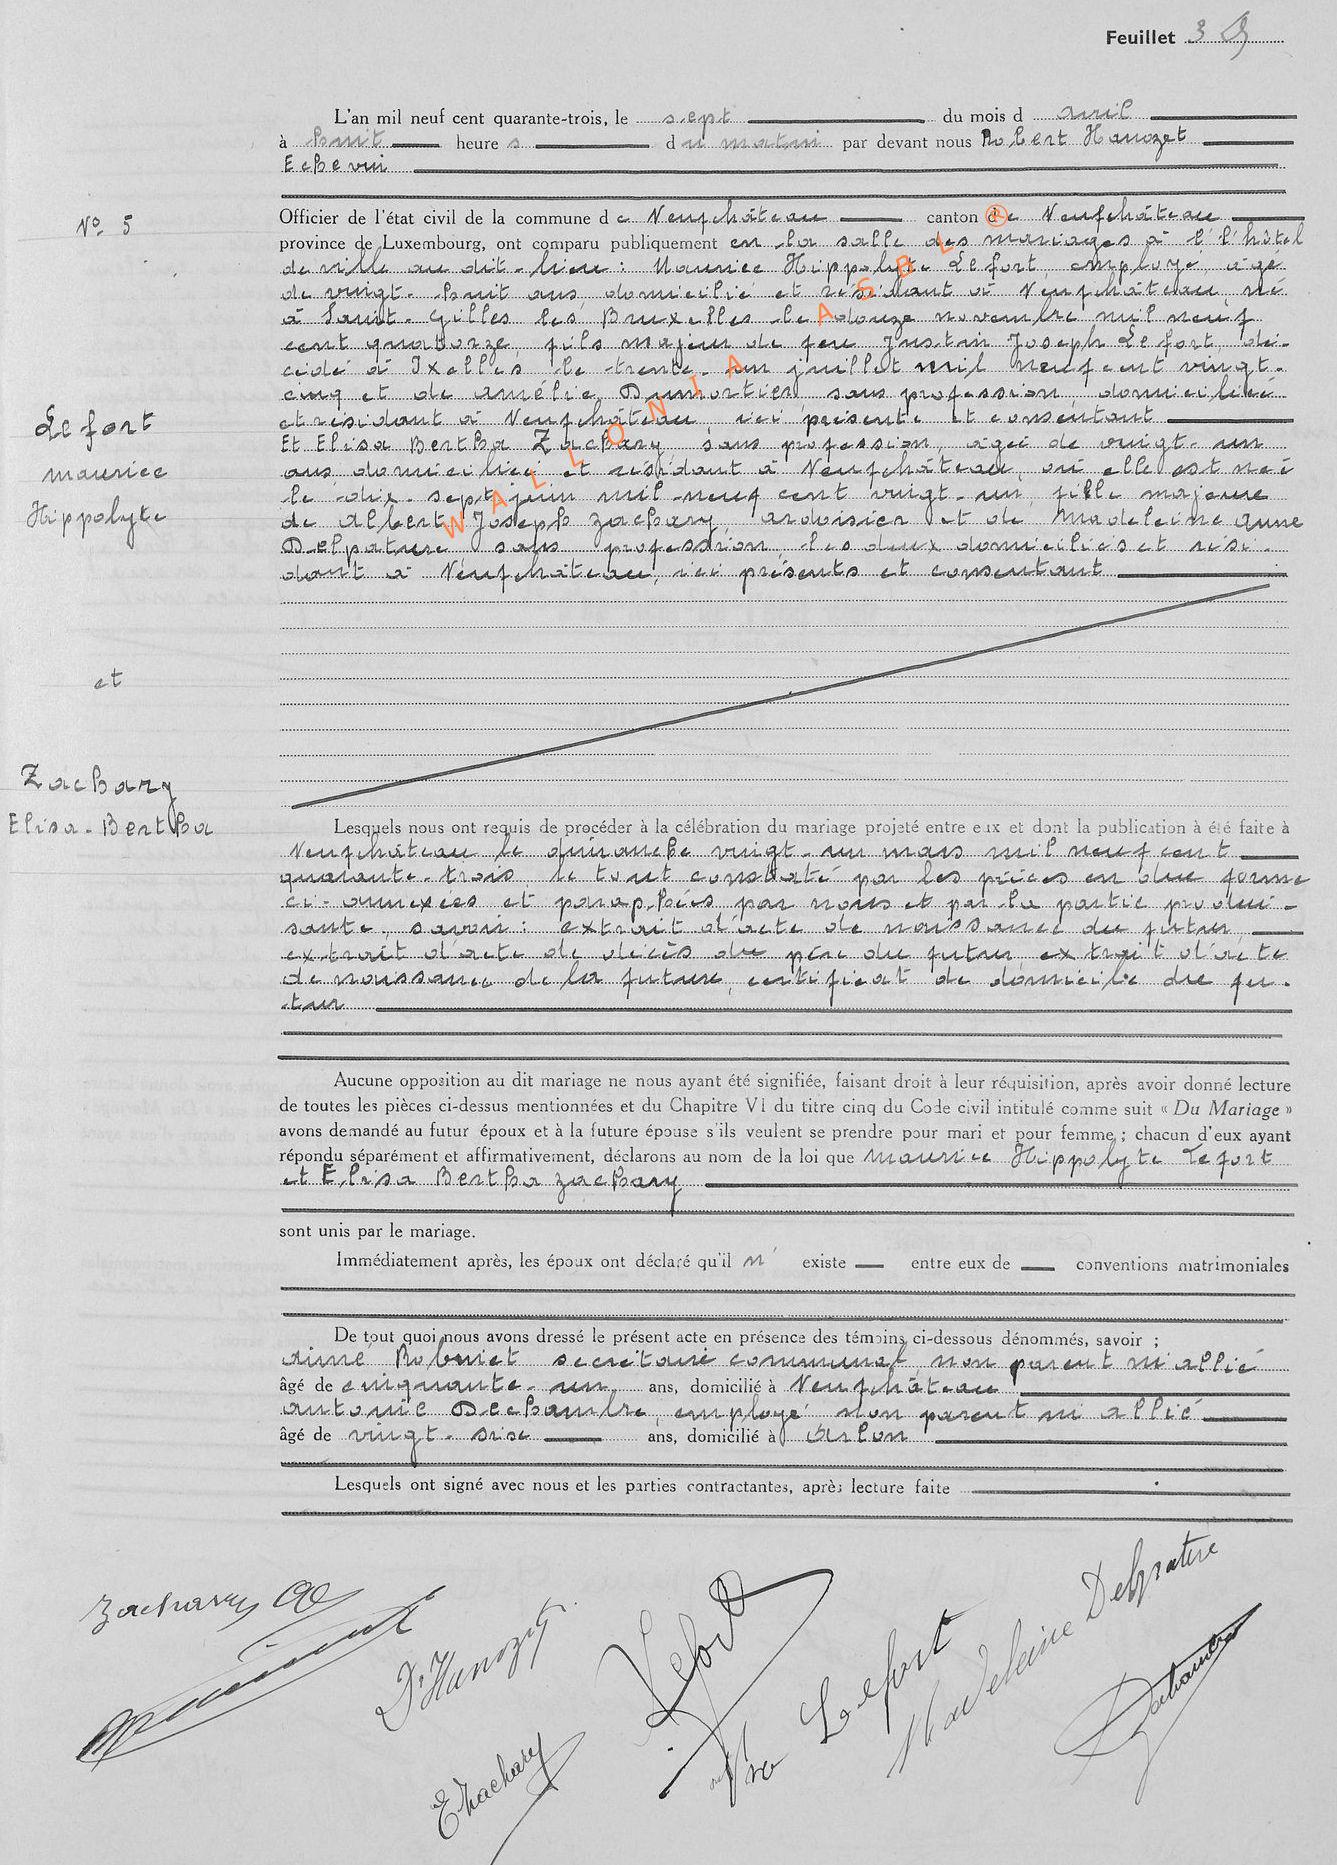 Feuillet 3
L'an mil neuf cent quarante-trois, le sept du mois d avril
à huit heure s du matin par devant nous Robert Hanozet
Echevin
N° 5
Officier de l'état civil de la commune de Neufchâteau canton de Neufchâteau
province de Luxembourg, ont comparu publiquement en la salle des mariages à l'hôtel
de ville au dit-lieu : Maurice Hippolyte Lefort, employé, âgé
de vingt-huit ans, domicilié et résidant à Neufchâteau, né
à Saint-Gilles les Bruxelles le douze novembre mil neuf
cent quatorze, fils majeur de feu Justin Joseph Lefort, dé-
cédé à Ixelles le trente-un juillet mil neuf cent vingt-
cinq et de Amélie Dumortier sans profession, domiciliée
et résidant à Neufchâteau, ici présente et consentant
Et Elisa Bertha Zachary, sans profession, âgée de vingt-un
ans domiciliée et résidant à Neufchâteau, où elle est née
le dix-sept juin mil-neuf cent vingt-un, fille majeure
de Albert Joseph Zachary, ardoisier et de Madeleine Anne
Delpature sans profession, les deux domiciliés et rési-
dant à Neufchâteau, ici présents et consentant
WALLONIA ASBL ®
Lefort
Maurice
Hippolyte
et
Zachary
Elisa-Bertha
Lesquels nous ont requis de procéder à la célébration du mariage projeté entre eux et dont la publication à été faite à
Neufchâteau le dimanche vingt-un mars mil neuf cent
quarante-trois le tout constaté par les pièces en due forme
ci-annexées et paraphées par nous et par la partie produi-
sante, savoir : extrait d'acte de naissance du futur,
extrait d'acte de décès du père du futur, extrait d'acte
de naissance de la future, certificat de domicile du fu-
tur
Aucune opposition au dit mariage ne nous ayant été signifiée, faisant droit à leur réquisition, après avoir donné lecture
de toutes les pièces ci-dessus mentionnées et du Chapitre VI du titre cinq du Code civil intitulé comme suit « Du Mariage »
avons demandé au futur époux et à la future épouse s'ils veulent se prendre pour mari et pour femme ; chacun d'eux ayant
répondu séparément et affirmativement, déclarons au nom de la loi que Maurice Hippolyte Lefort
et Elisa Bertha Zachary
sont unis par le mariage.
Immédiatement après, les époux ont déclaré qu'il n' existe entre eux de conventions matrimoniales
De tout quoi nous avons dressé le présent acte en présence des témoins ci-dessous dénommés, savoir ;
Aimé Robinet secrétaire communal, non parent ni allié
âgé de cinquante-un ans, domicilié à Neufchâteau
Antonie Dechambre, employé non parent ni allié
âgé de vingt-six ans, domicilié à Arlon
Lesquels ont signé avec nous et les parties contractantes, après lecture faite
Zachary
Dr Hanozet
Lefort
EZachary
Vve Lefort
Madeleine Delpature